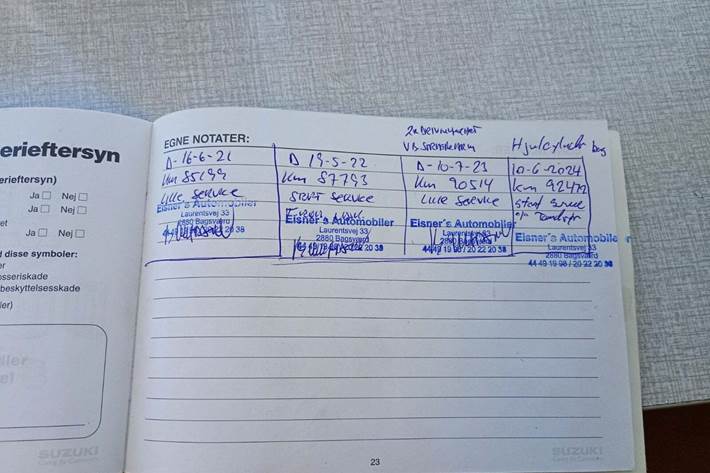 erieftersyn
erieftersyn)
Ja Nej
Ja Nej
et
Ja Nej
d disse symboler:
er
osseriskade
beskyttelsesskade
ler)
SUZUKI
EGNE NOTATER:
Hjulcylinder bag
D-16-6-21
Km 85199
Lille Service
Eisner's Automobiler
Laurentsvej 33
2880 Bagsværd
44 49 19 98 / 20 22 20 38
D 19-5-22
Km 87793
Stort Service
Eisner's Automobiler
Laurentsvej 33
2880 Bagsværd
44 49 19 98 / 20 22 20 38
D-10-7-23
Km 90514
Lille Service
Eisner's Automobiler
Laurentsvej 33
2880 Bagsværd
44 49 19 98 / 20 22 20 38
10-6-2024
Km 92472
Stort Service
Eisner's Automobiler
Laurentsvej 33
2880 Bagsværd
44 49 19 98 / 20 22 20 38
23
SUZUKI